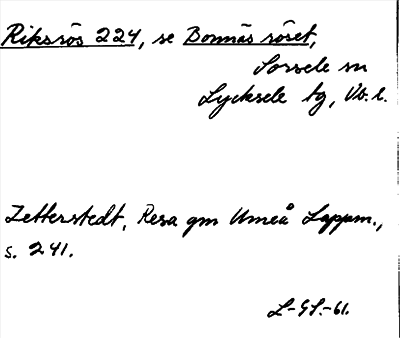 Riksrös 224, se Bonnäs röset,
Sorsele sn
Lycksele tg, Vb. l.
Zetterstedt, Resa gm Umeå Lappm.,
s. 241.
L-GS.-61.